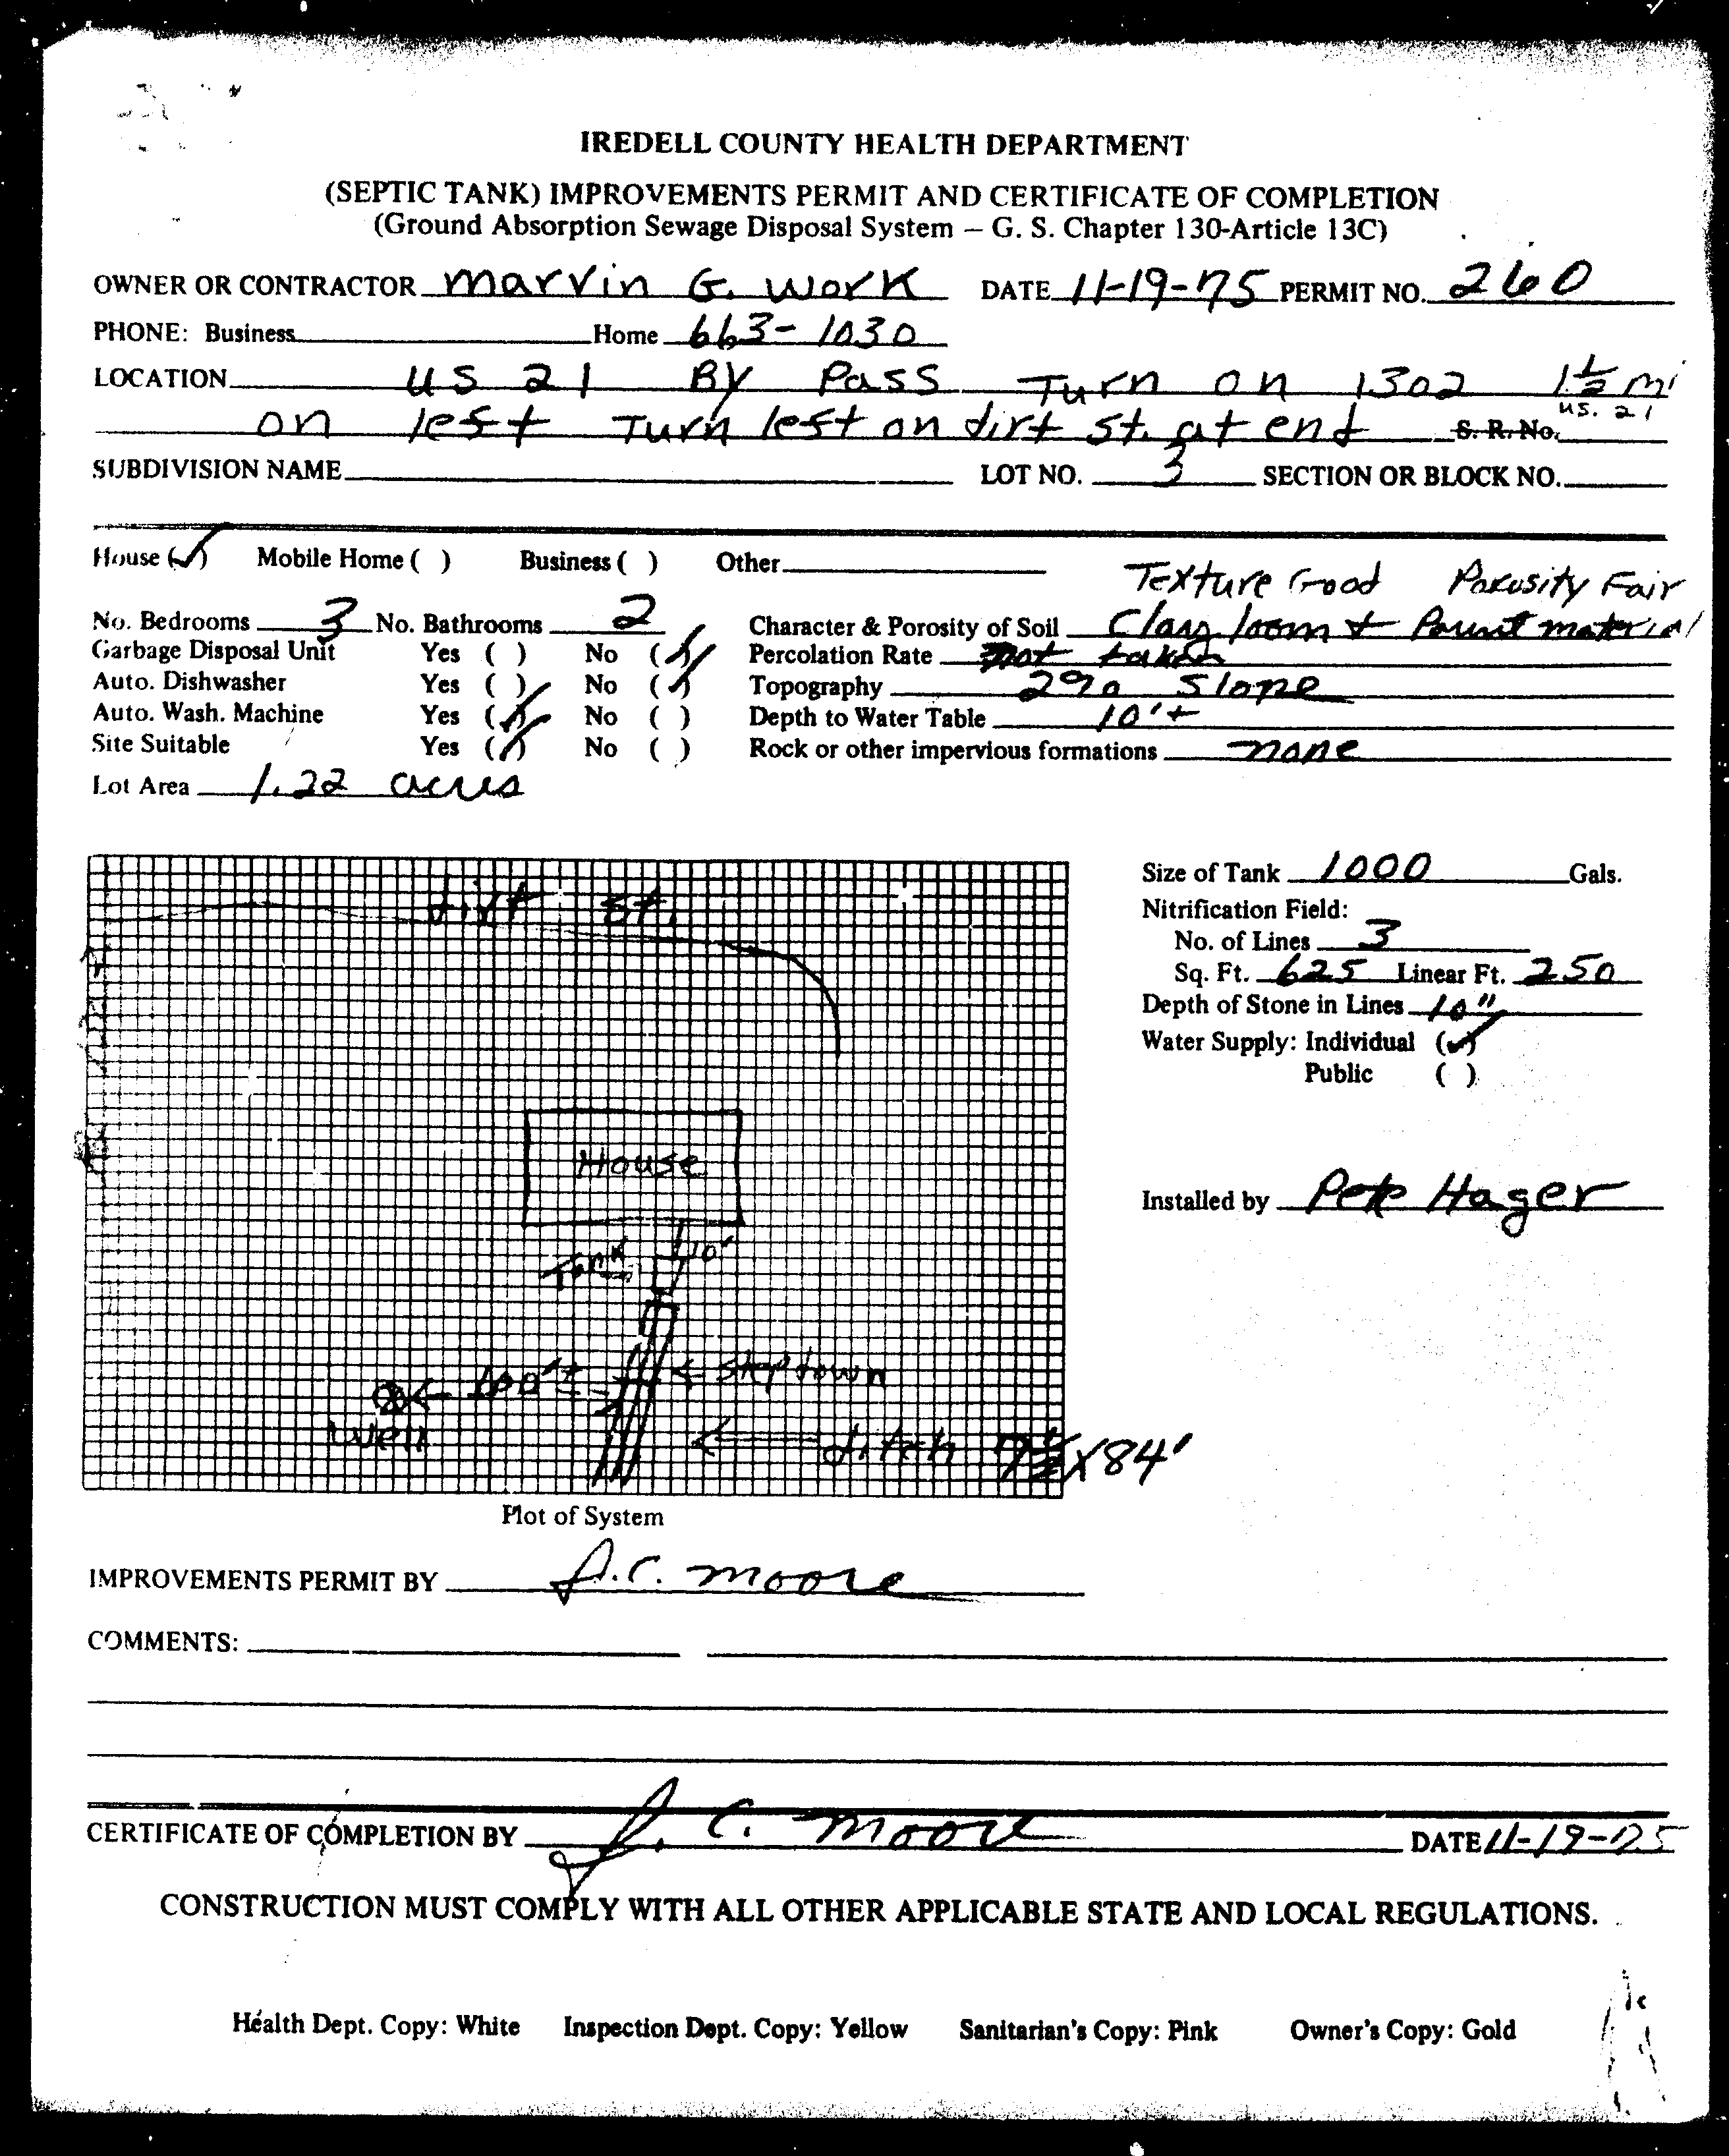 IREDELL COUNTY HEALTH DEPARTMENT
(SEPTIC TANK) IMPROVEMENTS PERMIT AND CERTIFICATE OF COMPLETION
(Ground Absorption Sewage Disposal System – G. S. Chapter 130-Article 13C)
OWNER OR CONTRACTOR Marvin G. Work DATE 11-19-75 PERMIT NO. 260
PHONE: Business Home 663-1030
LOCATION US 21 By Pass Turn on 1302 1½ mi
on left Turn left on dirt st. at end S. R. No. US. 21
SUBDIVISION NAME LOT NO. 3 SECTION OR BLOCK NO.
House (✓) Mobile Home ( ) Business ( ) Other
Texture Good Porosity Fair
No. Bedrooms 3 No. Bathrooms 2 Character & Porosity of Soil Clay loom + Parent material
Garbage Disposal Unit Yes ( ) No (✓) Percolation Rate not taken
Auto. Dishwasher Yes ( ) No (✓) Topography 2% Slope
Auto. Wash. Machine Yes (✓) No ( ) Depth to Water Table 10'+
Site Suitable Yes (✓) No ( ) Rock or other impervious formations none
Lot Area 1.22 acres
dirt st.
House
Tank 10'
step down
100'+
Well
ditch 7½x84'
Plot of System
Size of Tank 1000 Gals.
Nitrification Field:
No. of Lines 3
Sq. Ft. 625 Linear Ft. 250
Depth of Stone in Lines 10"
Water Supply: Individual (✓)
Public ( )
Installed by Pete Hager
IMPROVEMENTS PERMIT BY J.C. Moore
COMMENTS:
CERTIFICATE OF COMPLETION BY J. C. Moore DATE 11-19-75
CONSTRUCTION MUST COMPLY WITH ALL OTHER APPLICABLE STATE AND LOCAL REGULATIONS.
Health Dept. Copy: White Inspection Dept. Copy: Yellow Sanitarian's Copy: Pink Owner's Copy: Gold